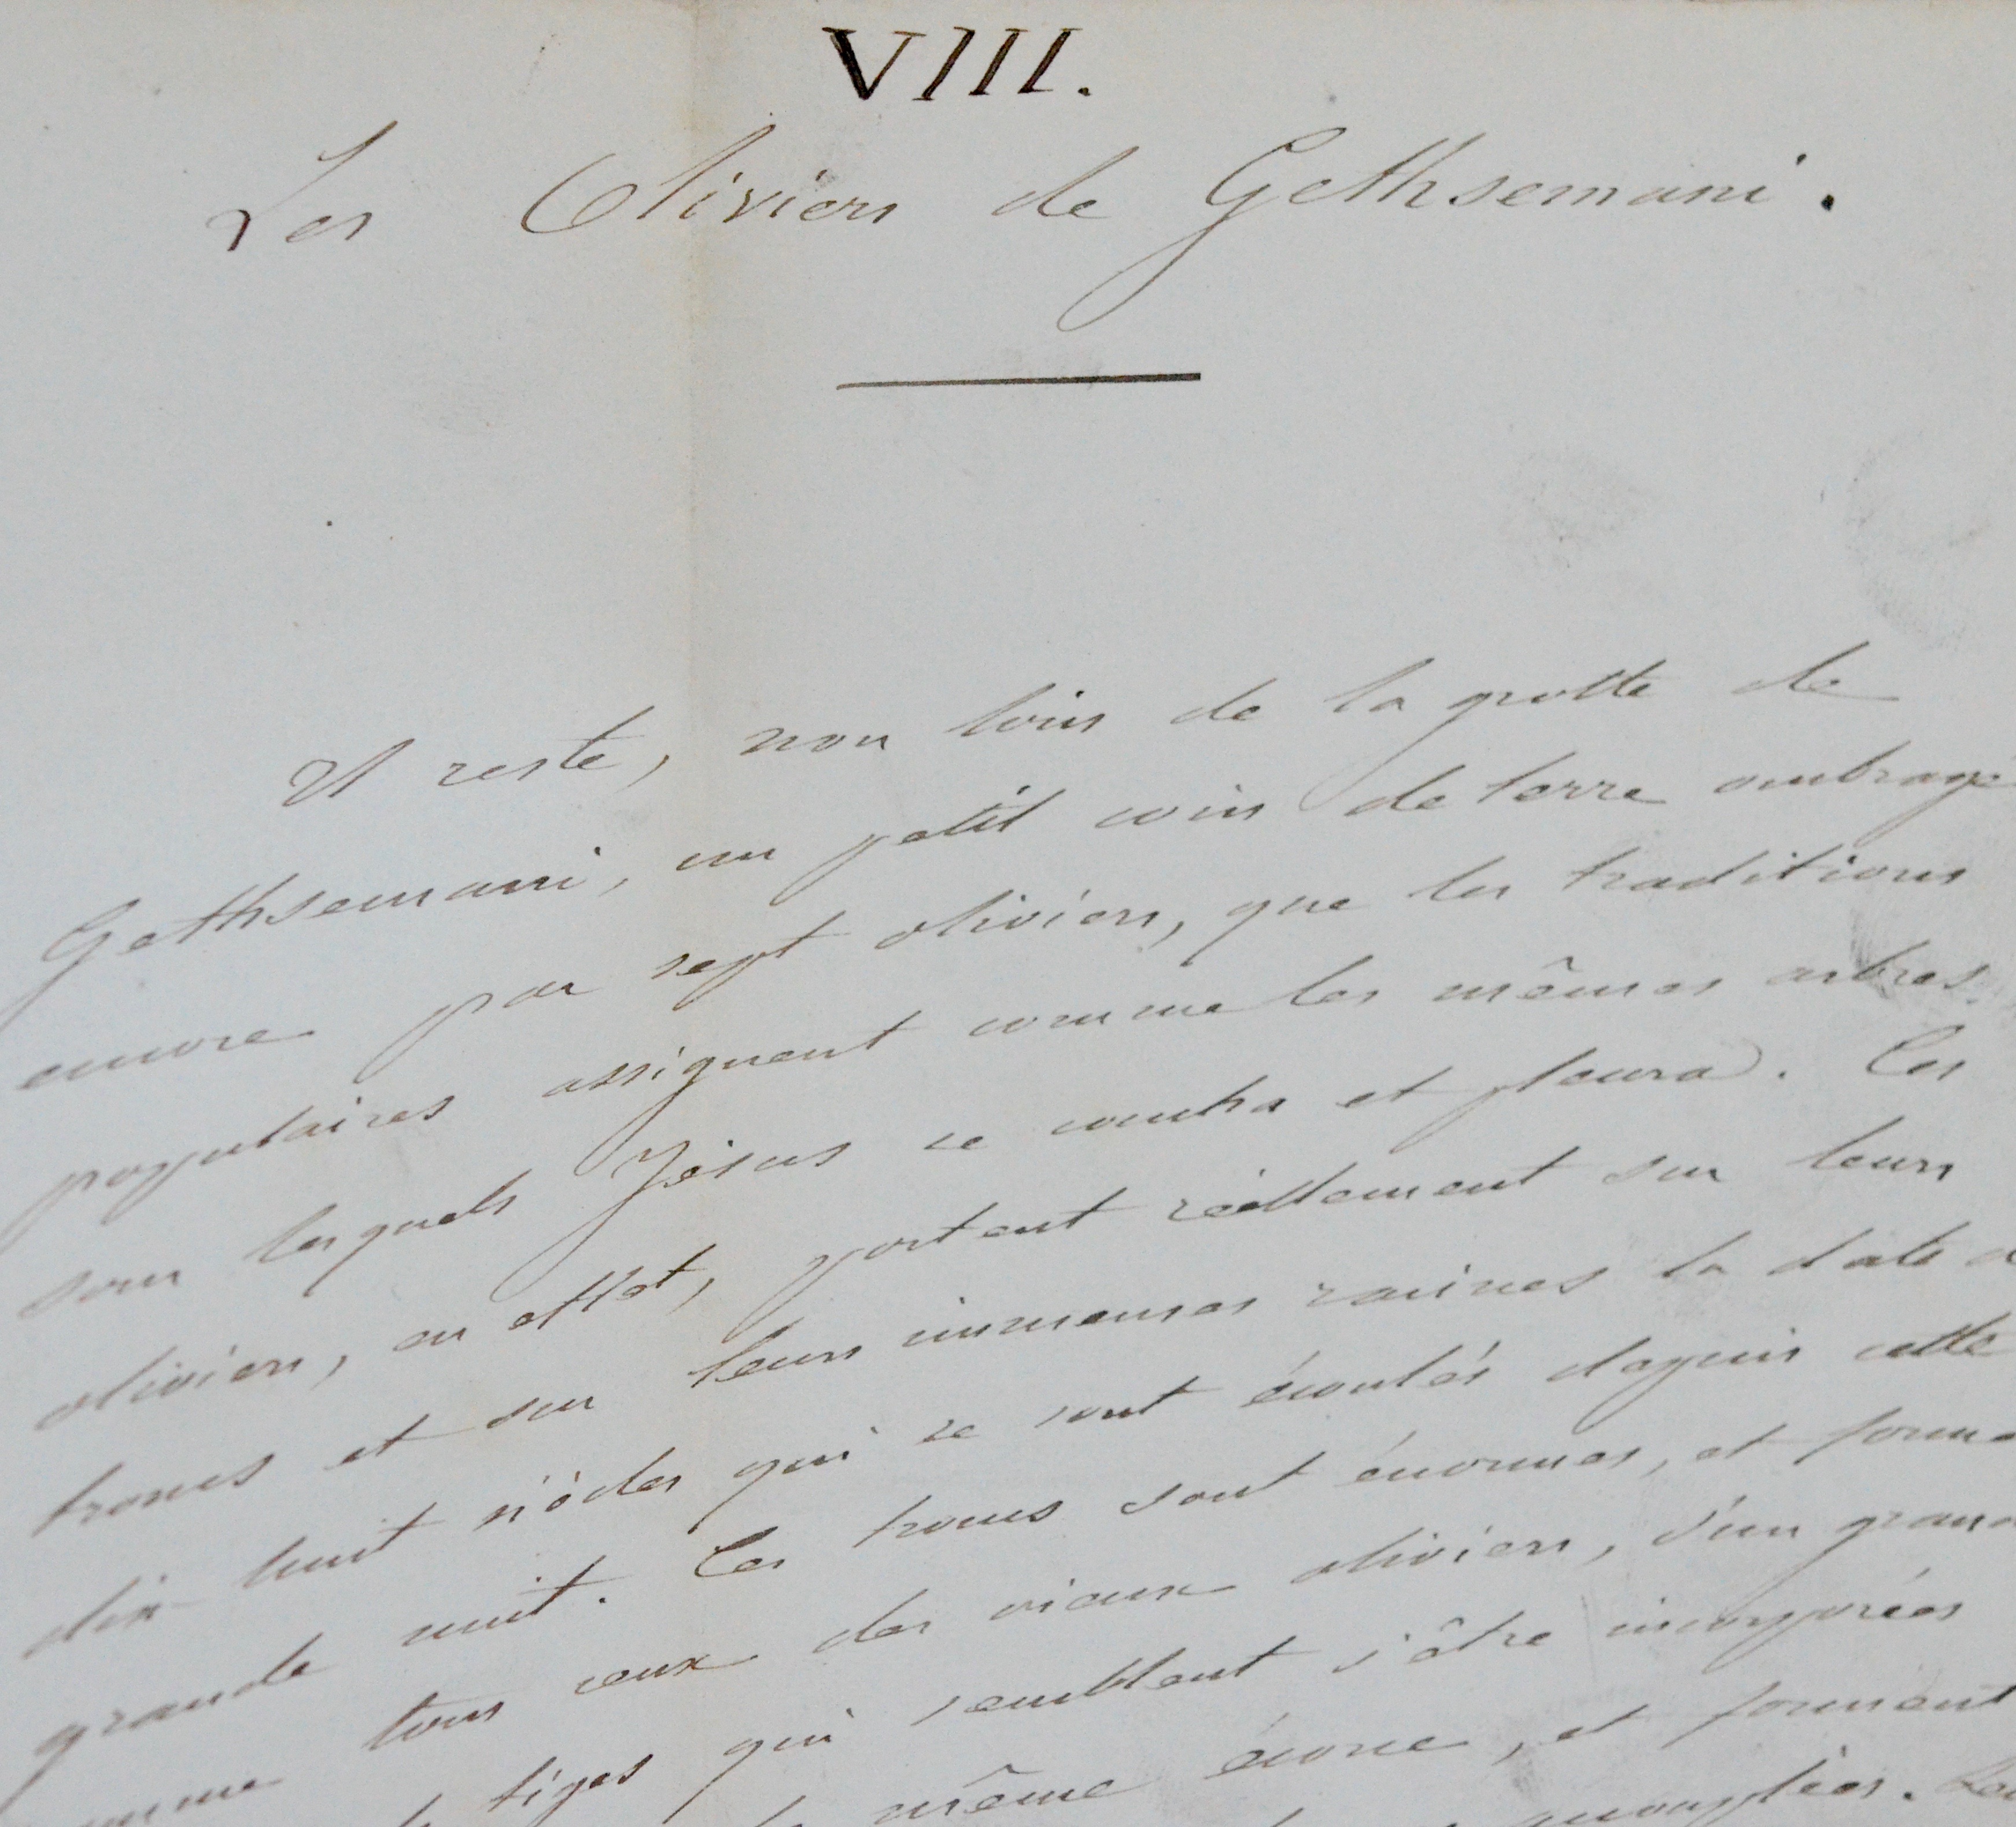 VIII.
Les Oliviers de Gethsemani.
Il reste, non loin de la grotte de
Gethsemani, un petit coin de terre ombragé
encore par sept oliviers, que les traditions
populaires assignent comme les mêmes arbres
sous lesquels Jésus se coucha et pleura. Ces
oliviers, en effet, portent réellement sur leurs
troncs et sur leurs immenses racines la date d
dix-huit siècles qui se sont écoulés depuis cette
grande nuit. Ces troncs sont énormes, et formé
comme tous ceux des vieux oliviers, d'un grand
tiges qui semblent s'être incorporées
même écorce, et forment